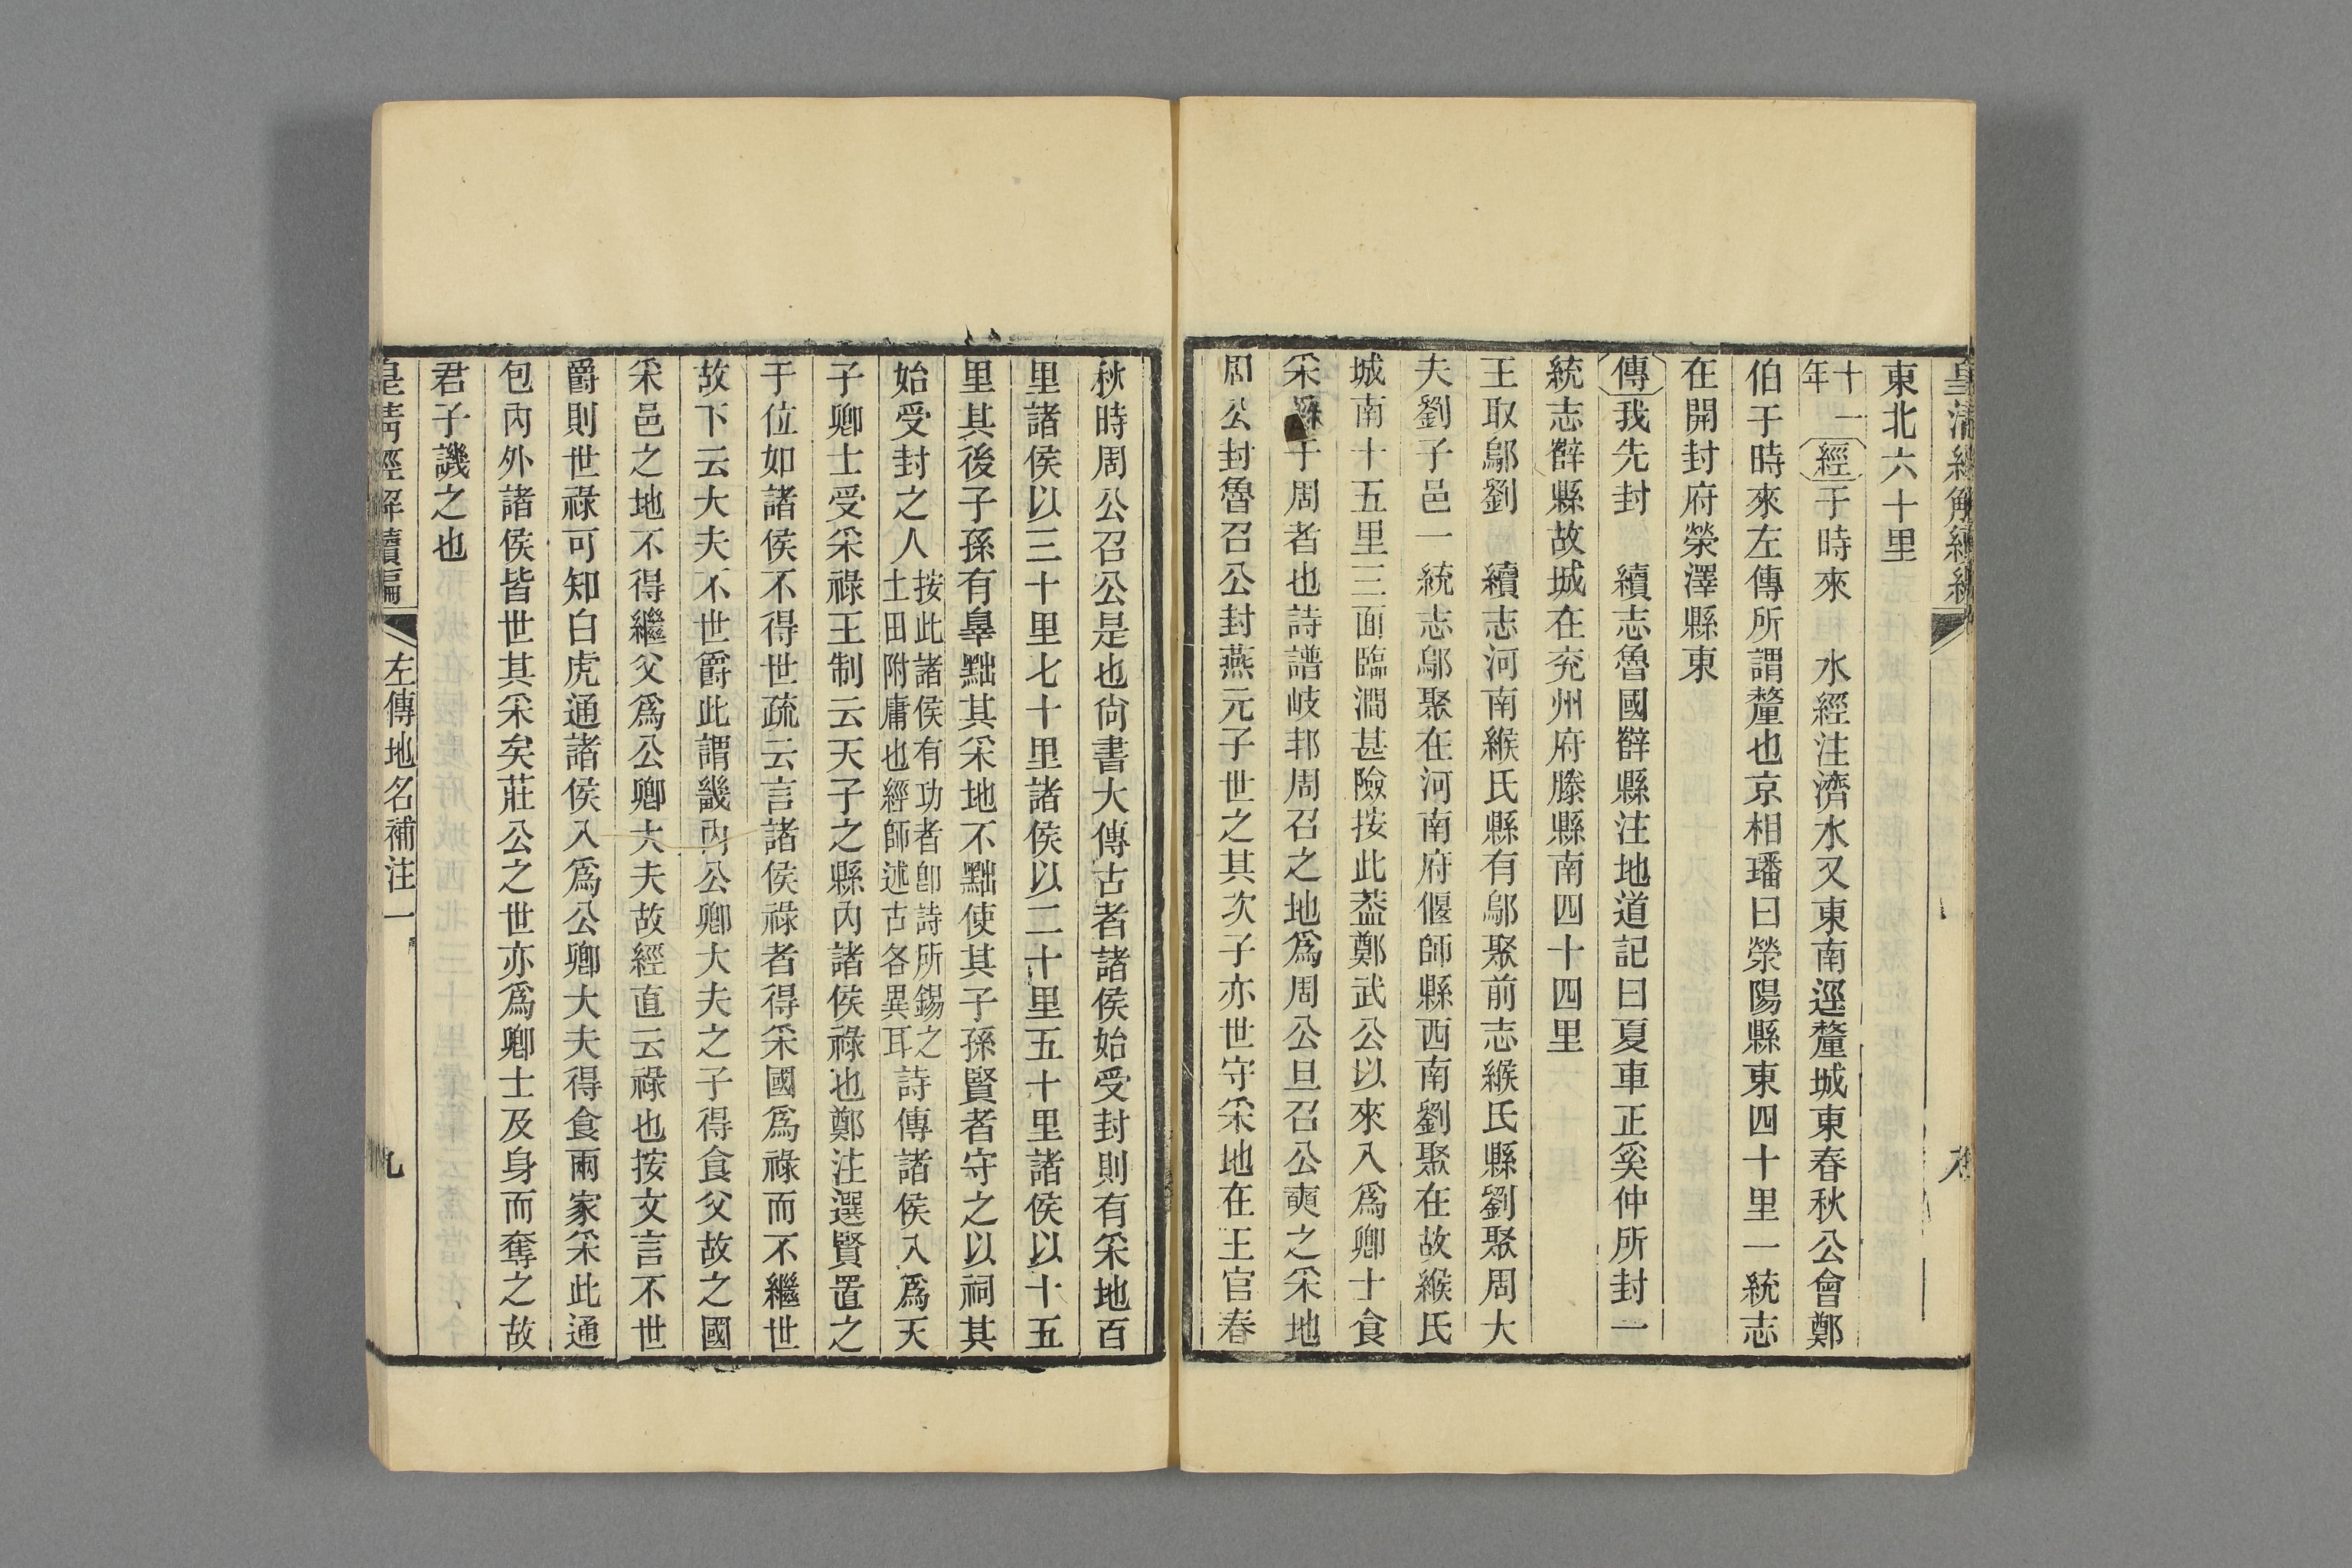 皇清經解續編
東北六十里
十一年 經 于時來 水經注濟水又東南逕釐城東春秋公會鄭
伯于時來左傳所謂釐也京相璠曰滎陽縣東四十里一統志
在開封府滎澤縣東
傳 我先封 續志魯國薛縣注地道記曰夏車正奚仲所封一
統志薛縣故城在兖州府滕縣南四十四里
王取鄔劉 續志河南緱氏縣有鄔聚前志緱氏縣劉聚周大
夫劉子邑一統志鄔聚在河南府偃師縣西南劉聚在故緱氏
城南十五里三面臨澗甚險按此葢鄭武公以來入爲卿士食
采于周者也詩譜岐邦周召之地爲周公旦召公奭之采地
周公封魯召公封燕元子世之其次子亦世守采地在王官春
秋時周公召公是也尙書大傳古者諸侯始受封則有采地百
里諸侯以三十里七十里諸侯以二十里五十里諸侯以十五
里其後子孫有辠黜其采地不黜使其子孫賢者守之以祠其
始受封之人按此諸侯有功者卽詩所錫之土田附庸也經師述古各異耳詩傳諸侯入爲天
子卿士受采祿王制云天子之縣內諸侯祿也鄭注選賢置之
于位如諸侯不得世疏云言諸侯祿者得采國爲祿而不繼世
故下云大夫不世爵此謂畿內公卿大夫之子得食父故之國
采邑之地不得繼父爲公卿大夫故經直云祿也按文言不世
爵則世祿可知白虎通諸侯入爲公卿大夫得食兩家采此通
包內外諸侯皆世其采矣莊公之世亦爲卿士及身而奪之故
君子譏之也
皇清經解續編 左傳地名補注一 九